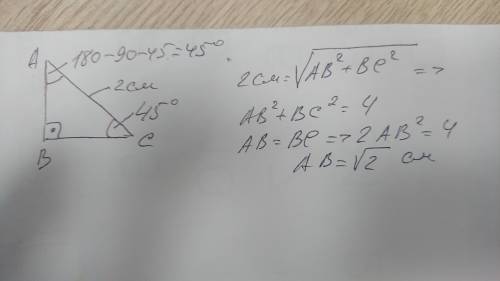 A 180-90-45=45°
2см
45°
B
C
2см=√AB²+BC² =>
AB²+BC²=4
AB=BC=>2AB²=4
AB=√2 см